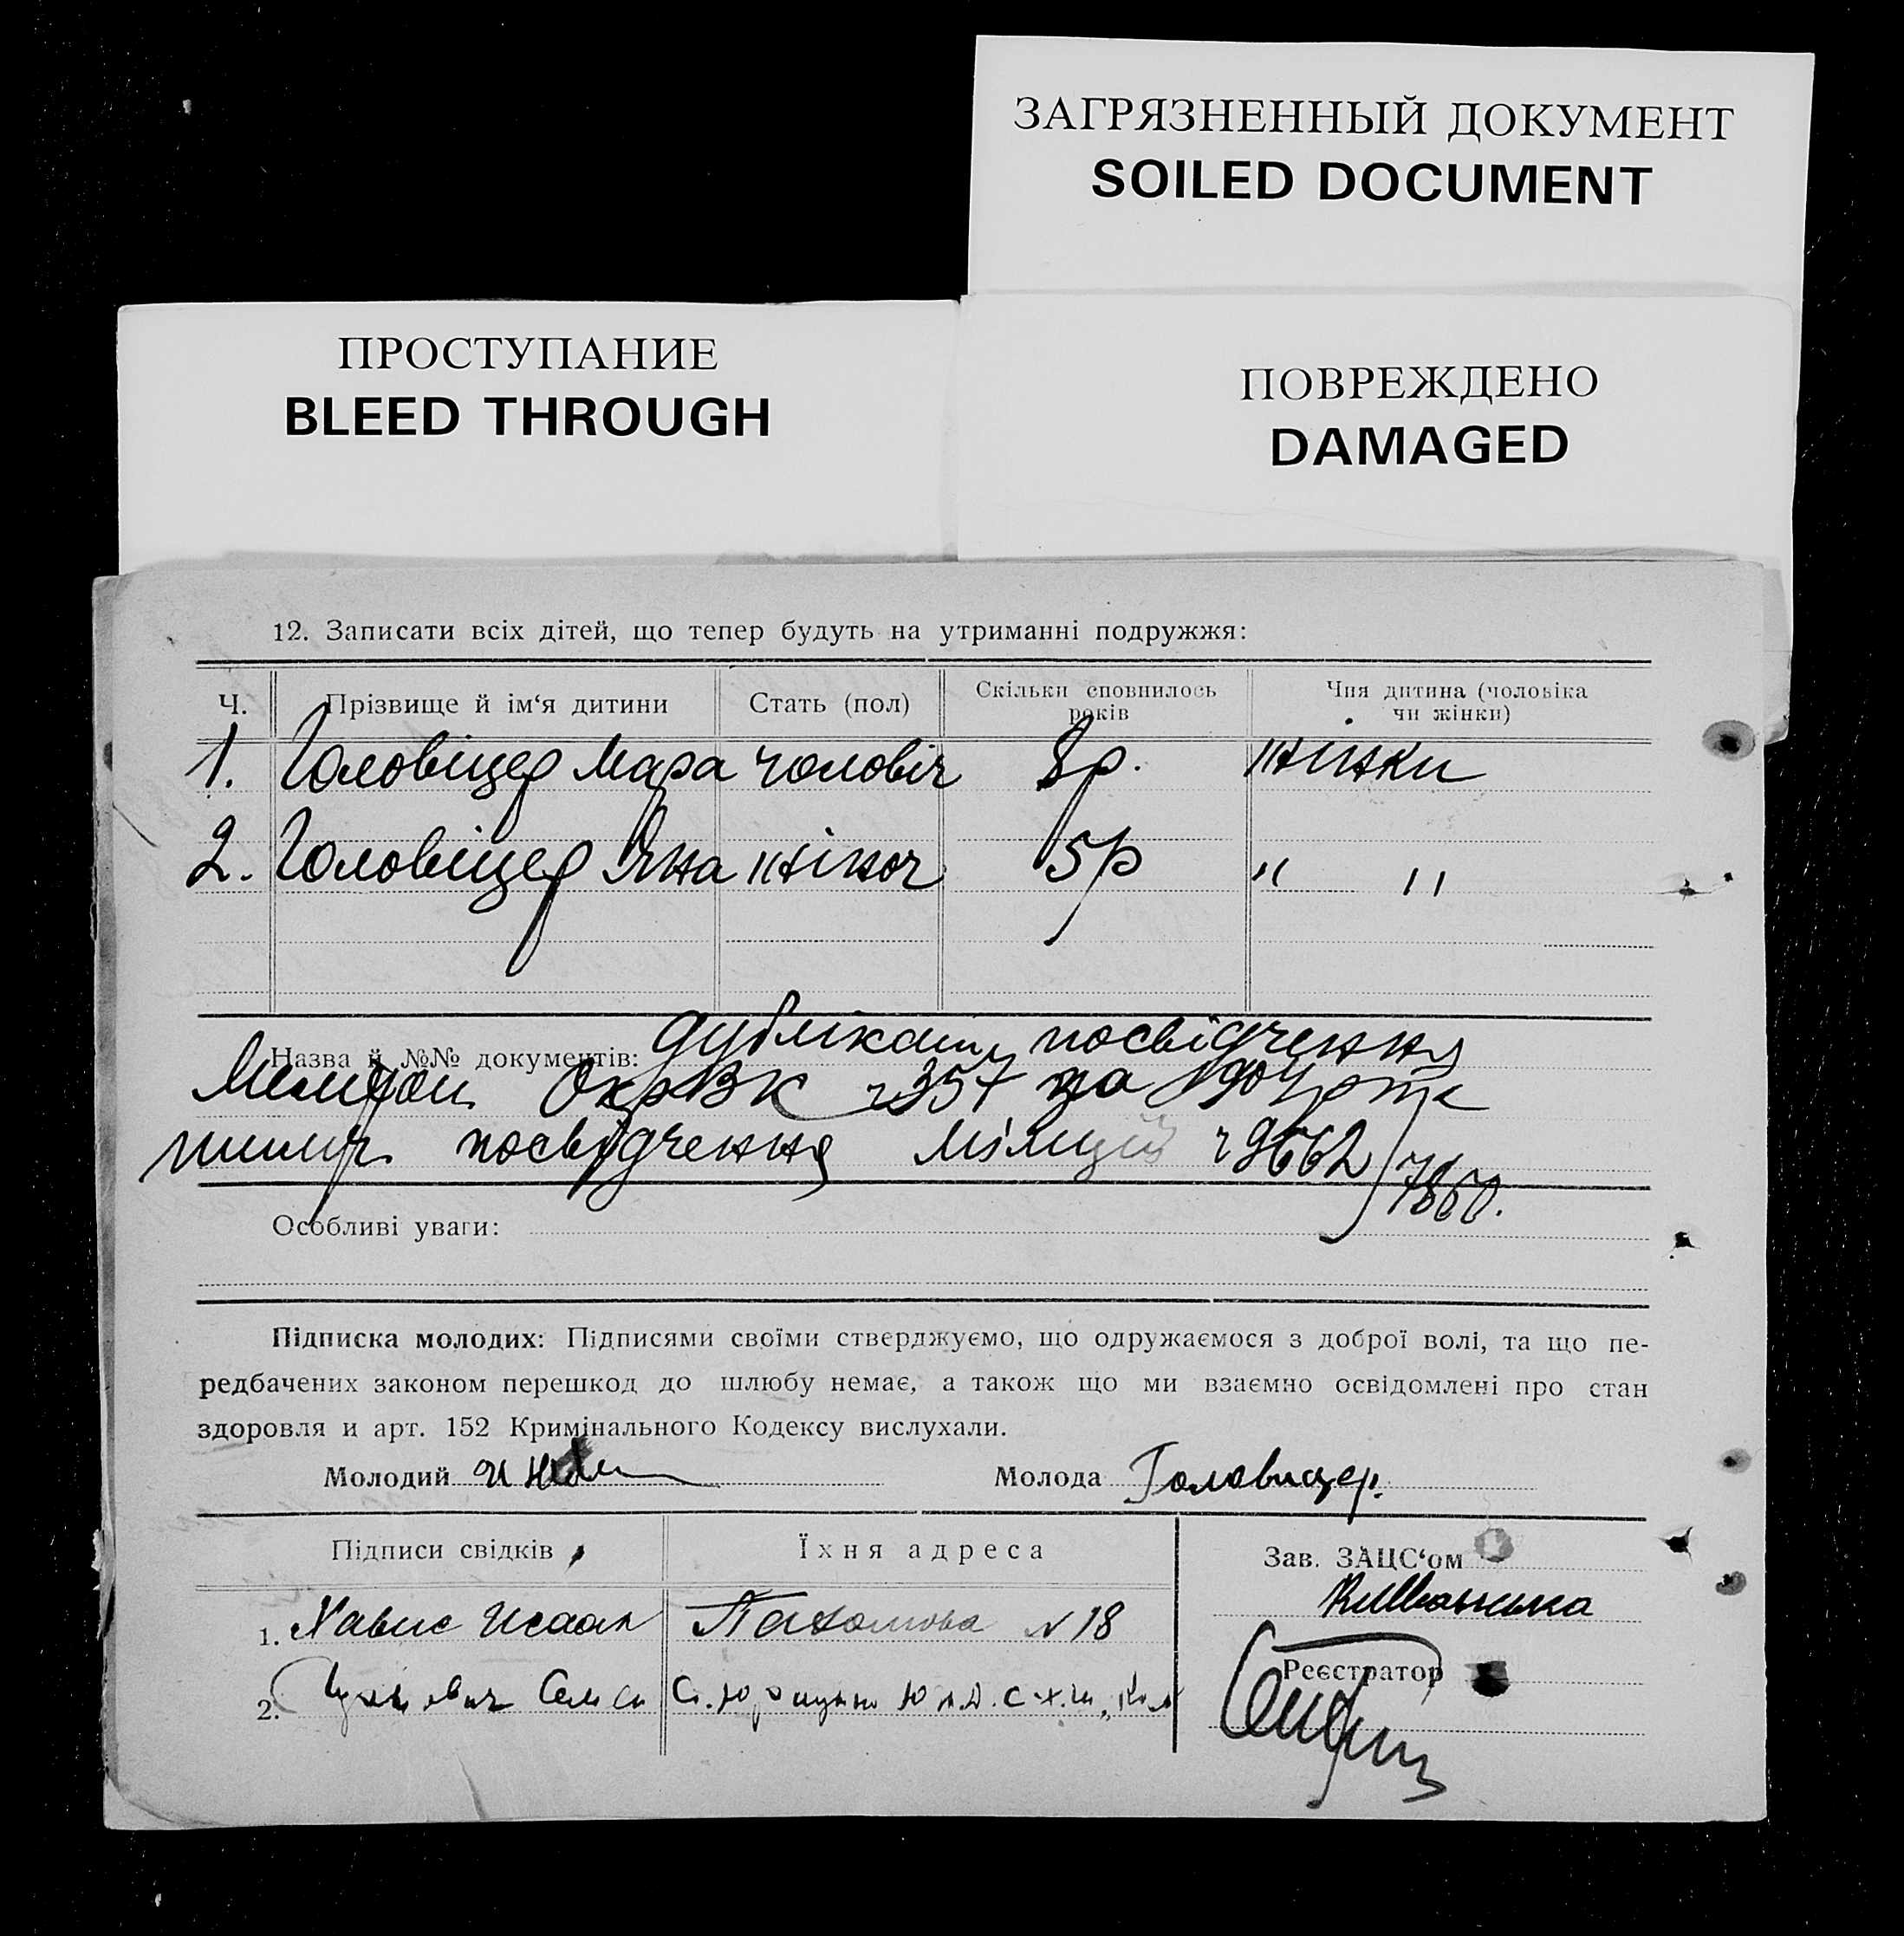 ЗАГРЯЗНЕННЫЙ ДОКУМЕНТ
SOILED DOCUMENT
ПРОСТУПАНИЕ
BLEED THROUGH
ПОВРЕЖДЕНО
DAMAGED
12. Записати всіх дітей, що тепер будуть на утриманні подружжя:
Ч. Прізвище й ім‘я дитини Стать (пол) Скільки сповнилось років Чия дитина (чоловіка чи жінки)
1. Головіцер Мара чоловіч 8р. жінки
2. Головіцер Яна жіноч 5р " "
дублікат посвідчення
Назва й №№ документів:
ОкрВК 357 на
посвідчення міліції ч 9662/7860.
Особливі уваги:
Підписка молодих: Підписями своїми стверджуємо, що одружаємося з доброї волі, та що пе-
редбачених законом перешкод до шлюбу немає, а також що ми взаємно освідомлені про стан
здоровля и арт. 152 Кримінального Кодексу вислухали.
Молодий Молода Головицер.
Підписи свідків Їхня адреса Зав. ЗАЦС‘ом
1. Хавис Исаак N 18
Реєстратор
2.